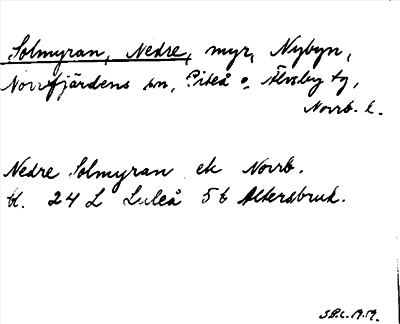 Solmyran, Nedre, myr, Nybyn,
Norrfjärdens sn, Piteå o. Älvsby tg,
Norrb. l.
Nedre Solmyran ek Norrb.
bl. 24 L Luleå 5 b Altersbruk.
S.O.L. 1959.